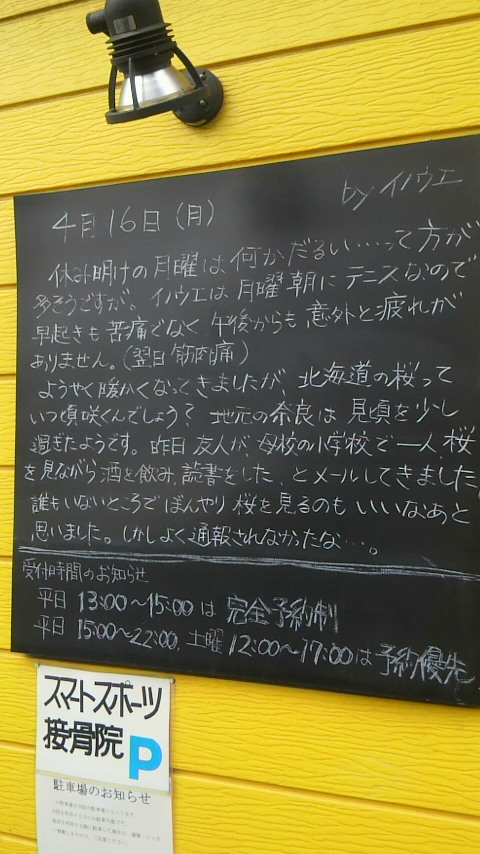 4月16日(月)
by イノウエ
休み明けの月曜は、何かだるい……って方が
多そうですが。イノウエは月曜朝にテニスなので
早起きも苦痛でなく午後からも意外と疲れが
ありません。(翌日筋肉痛)
ようやく暖かくなってきましたが、北海道の桜って
いつ頃咲くんでしょう? 地元の奈良は見頃を少し
過ぎたようです。昨日友人が、母校の小学校で一人、桜
を見ながら酒を飲み、読書をした、とメールしてきました
誰もいないところでぼんやり桜を見るのもいいなあと
思いました。しかしよく通報されなかったな…。
受付時間のお知らせ
平日 13:00〜15:00は完全予約制
平日 15:00〜22:00、土曜12:00〜17:00は予約優先
スマートスポーツ
接骨院 P
駐車場のお知らせ